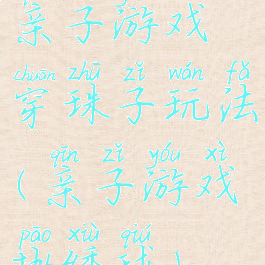 亲子游戏
chuān zhū zǐ wán fǎ
穿珠子玩法
qīn zǐ yóu xì
(亲子游戏
pāo xiù qiú
抛绣球)